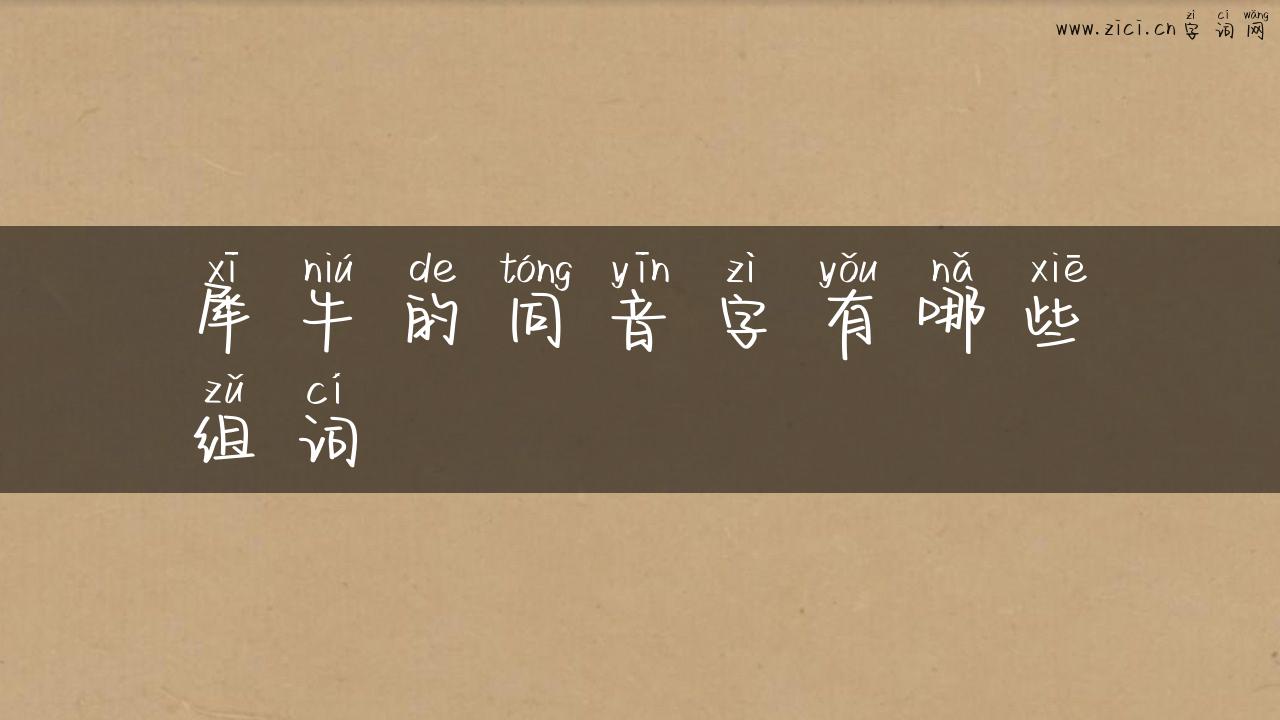 zì cí wǎng
www.zici.cn 字词网
xī niú de tóng yīn zì yǒu nǎ xiē
犀牛的同音字有哪些
zǔ cí
组词